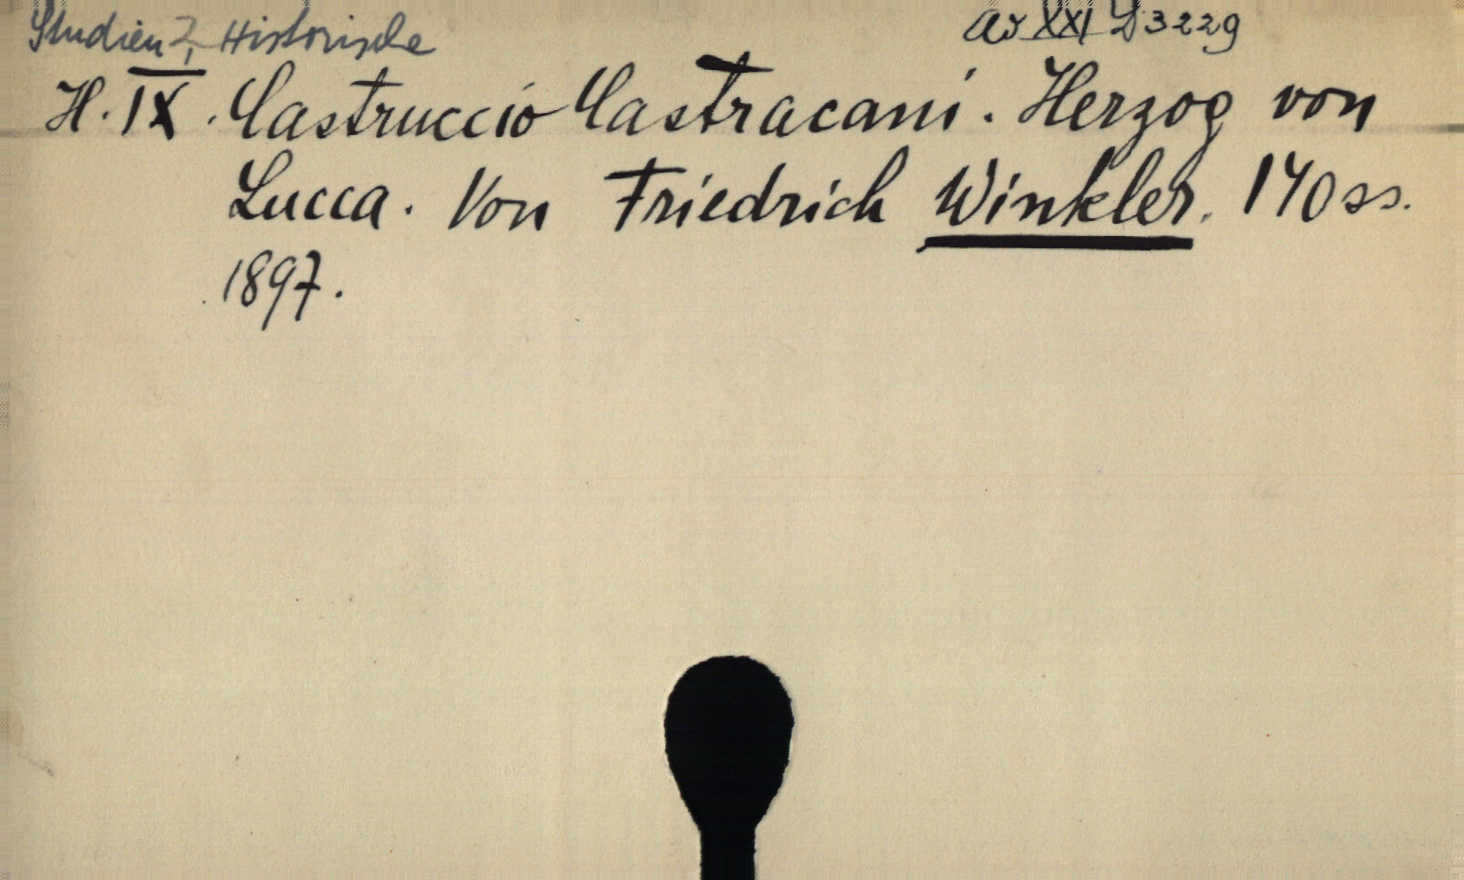 Studien 2, Historische
Av XXI D 3229
H. IX. Castruccio Castracani. Herzog von
Lucca. Von Friedrich Winkler. 140 ss.
1897.